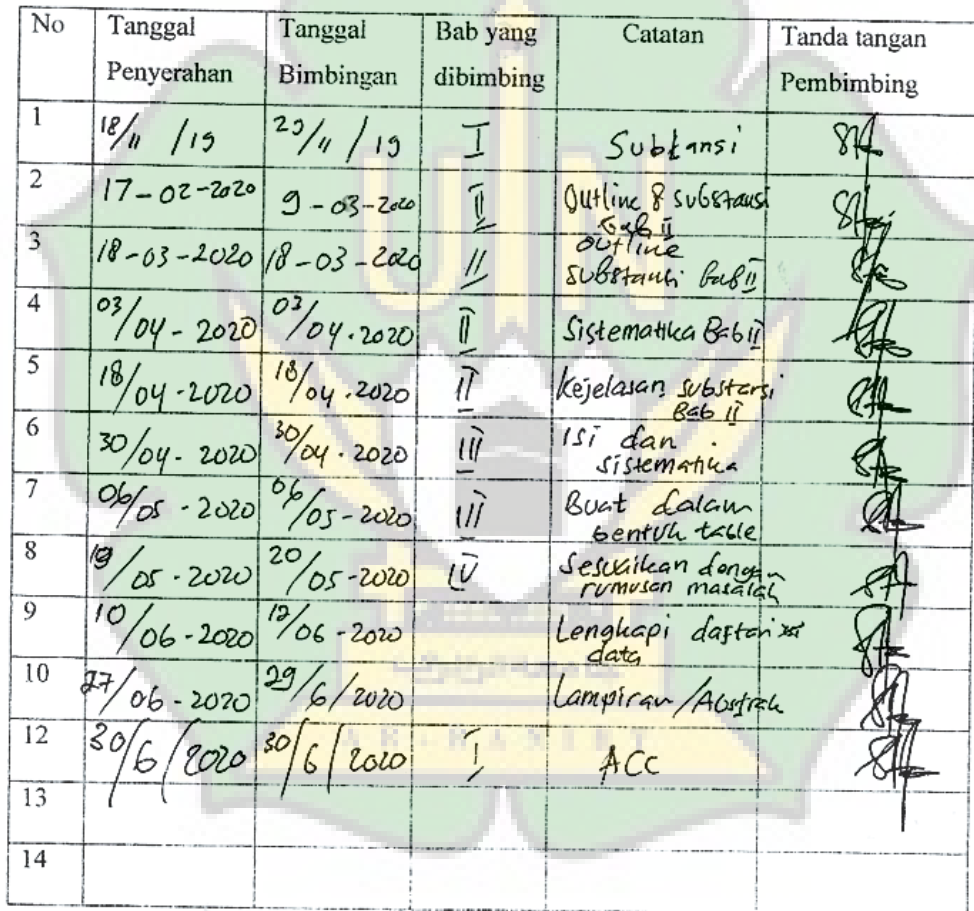 No Tanggal Penyerahan Tanggal Bimbingan Bab yang dibimbing Catatan Tanda tangan Pembimbing
1 18/11 /19 29/11 /19 I Subtansi
2 17-02-2020 9-03-2020 II Outline & substansi bab II
3 18-03-2020 18-03-2020 II outline substansi bab II
4 03/04-2020 03/04.2020 II Sistematika Bab II
5 18/04-2020 18/04.2020 II Kejelasan substansi Bab II
6 30/04.2020 30/04.2020 III Isi dan sistematika
7 06/05-2020 06/05-2020 III Buat dalam bentuk table
8 19/05.2020 20/05-2020 IV Sesuaikan dengan rumusan masalah
9 10/06-2020 12/06-2020 Lengkapi daftar isi data
10 27/06-2020 29/6/2020 Lampiran/Abstrak
12 30/6/2020 30/6/2020 I ACC
13
14
UIN
AR-RANIRY